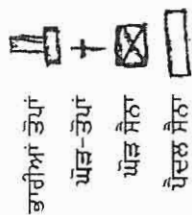 ਭਾਰੀਆਂ ਤੋਪਾਂ
ਘੋੜ-ਤੋਪਾਂ
ਘੋੜ ਸੈਨਾ
ਪੈਦਲ ਸੈਨਾ